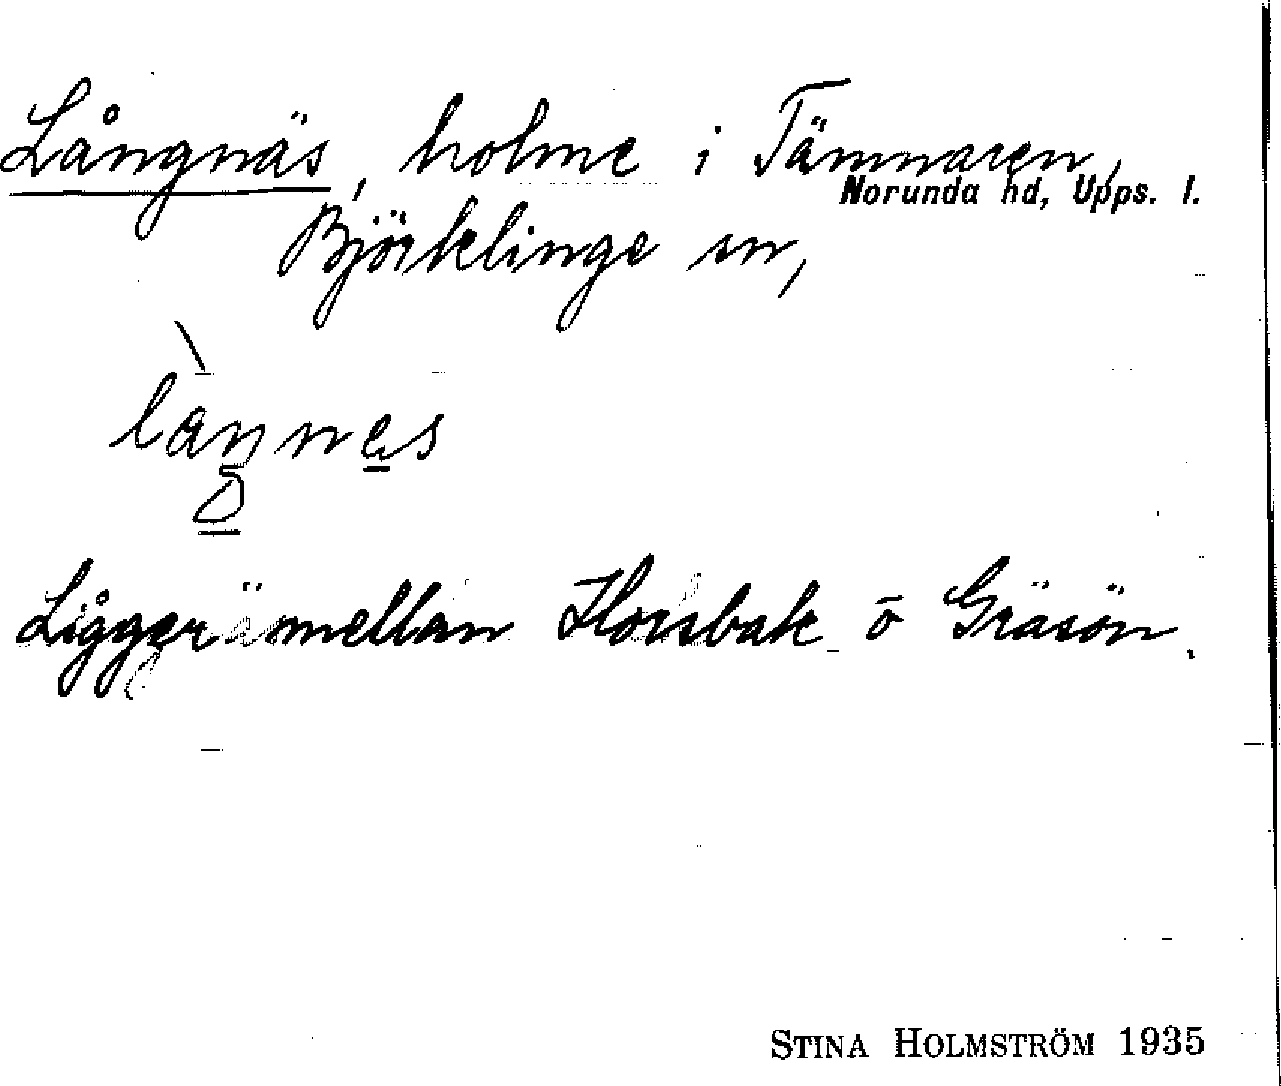 Långnäs, holme i Tämnaren,
Norunda hd, Upps. l.
Björklinge sn,
Ligger mellan Horsbak o Gräsön.
STINA HOLMSTRÖM 1935